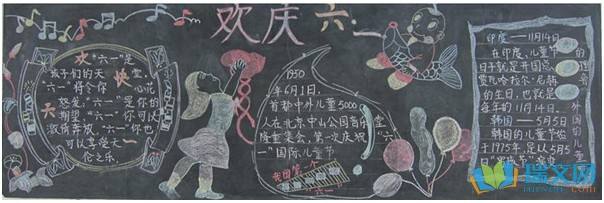 欢庆六一
欢“六一”是
孩子们的天堂,
“六一”将令你心花
怒放,“六一”是你的
期望“六一”你可以
激情奔放,“六一”你也
可以享受天
伦之乐。
快
六
一
1950
年6月1日,
首都中外儿童5000
人在北京中山公园音乐堂
隆重集会,第一次庆祝“六
一”国际儿童节
我国第一个
“六一”
印度——11月14日
在印度,儿童节的
日子就是开国总理
贾瓦哈拉尔·尼赫鲁
的生日,也就是
每年的11月14日。
韩国——5月5日
韩国的儿童节始
于1975年,是以5月5
外国的儿童节
课文网